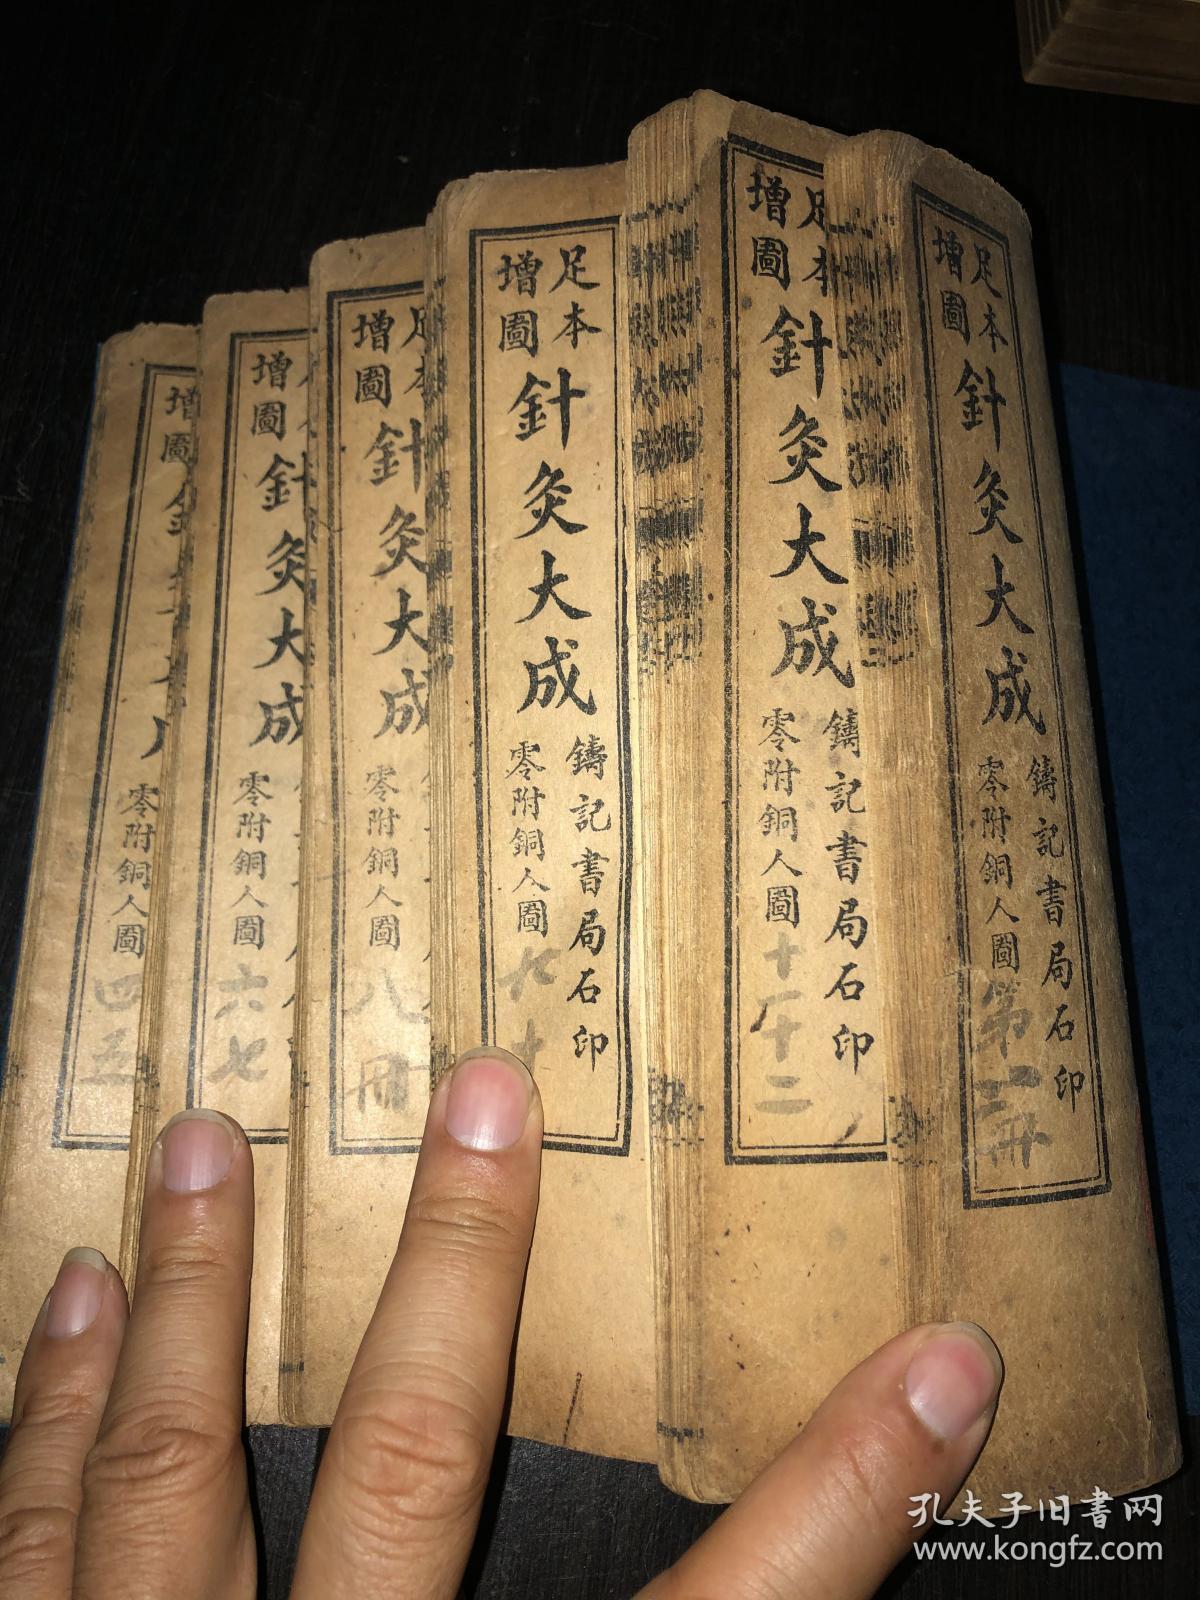 足本
增圖
針灸大成
鑄記書局石印
零附銅人圖
第一冊
足本
增圖
針灸大成
鑄記書局石印
零附銅人圖
十一十二
足本
增圖
針灸大成
鑄記書局石印
零附銅人圖
九十
足本
增圖
針灸大成
零附銅人圖
八冊
增圖
針灸大成
零附銅人圖
六七
增圖
零附銅人圖
四五
孔夫子旧书网
www.kongfz.com